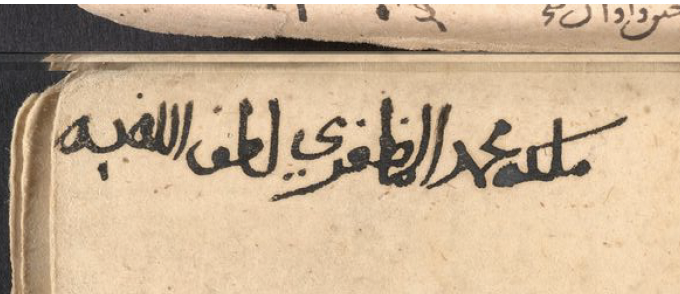 ملكه محمد المظفري لطف الله به